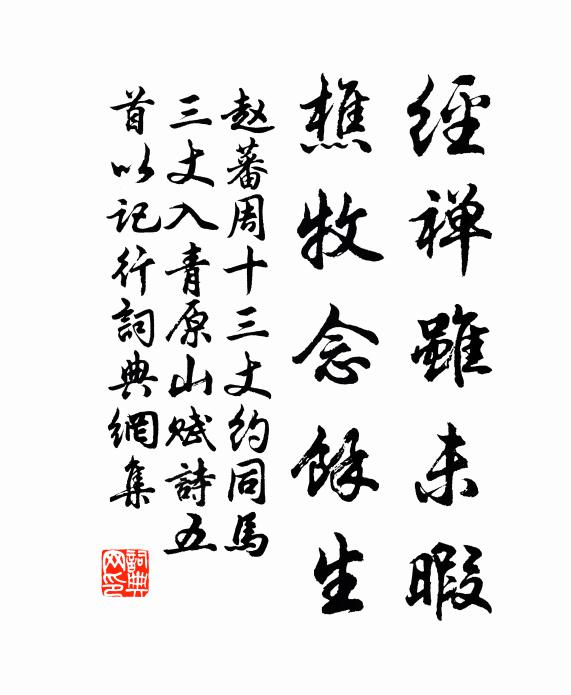 經禅雖未暇
樵牧念餘生
赵蕃周十三丈約同馬
三丈入青原山赋詩五
首以记行詞典網集
詞典
网印